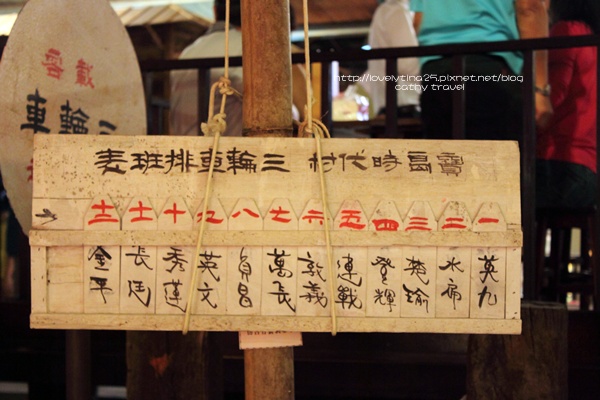 http://lovelytina25.pixnet.net/blog
cathy travel
寶島時代村 三輪車排班表
一 二 三 四 五 六 七 八 九 十 十一 十二
英九 水扁 楚瑜 登輝 連戰 敦義 萬長 貞昌 英文 秀蓮 長廷 金平
三輪車